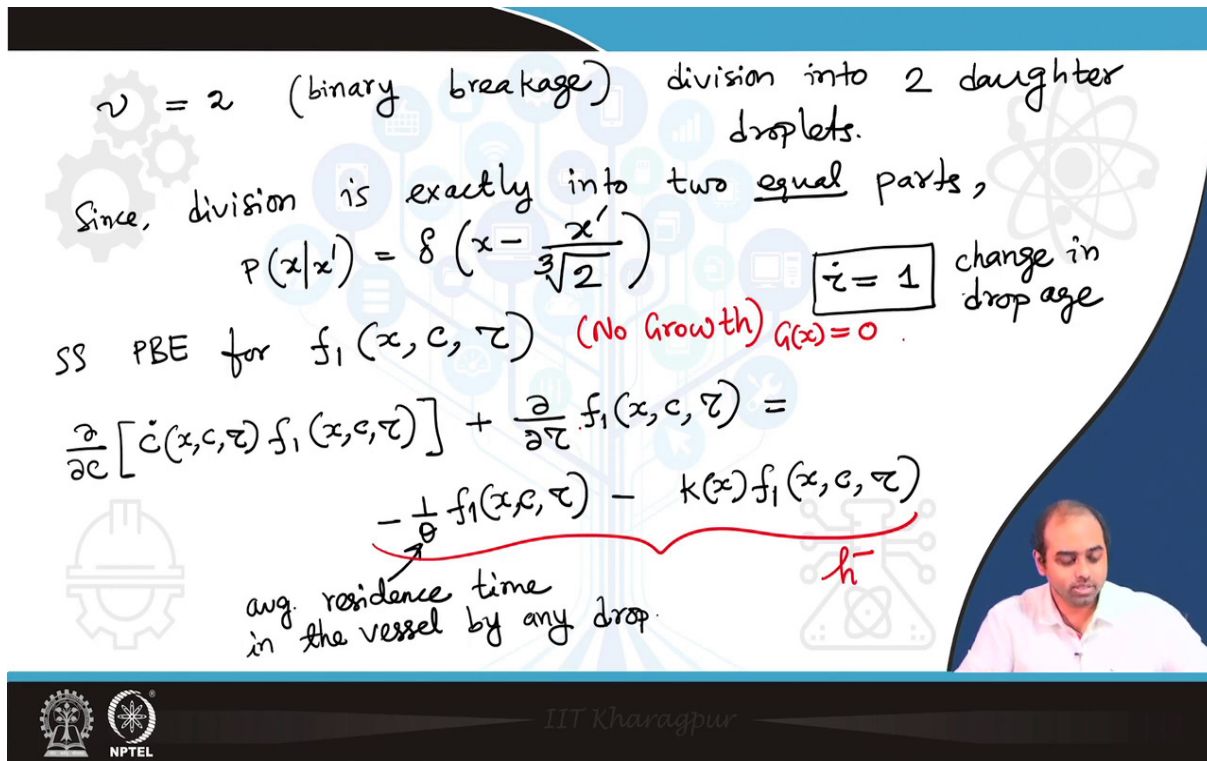 ν = 2 (binary breakage) division into 2 daughter
droplets.
Since, division is exactly into two equal parts,
P(x|x') = δ (x - x'/∛2)
τ̇ = 1 change in
drop age
SS PBE for f₁(x, c, τ) (No Growth) G(x) = 0.
∂/∂c [ċ(x,c,τ) f₁(x,c,τ)] + ∂/∂τ f₁(x, c, τ) =
- 1/θ f₁(x,c,τ) - k(x) f₁(x, c, τ)
h⁻
avg. residence time
in the vessel by any drop.
IIT Kharagpur
NPTEL